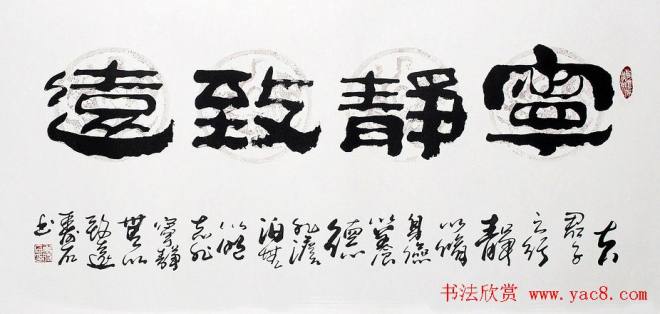 寧靜致遠
夫
君子
之行
靜
以脩
身儉
以養
德
非澹
泊無
以明
志非
寧靜
無以
致遠
书法欣赏 www.yac8.com